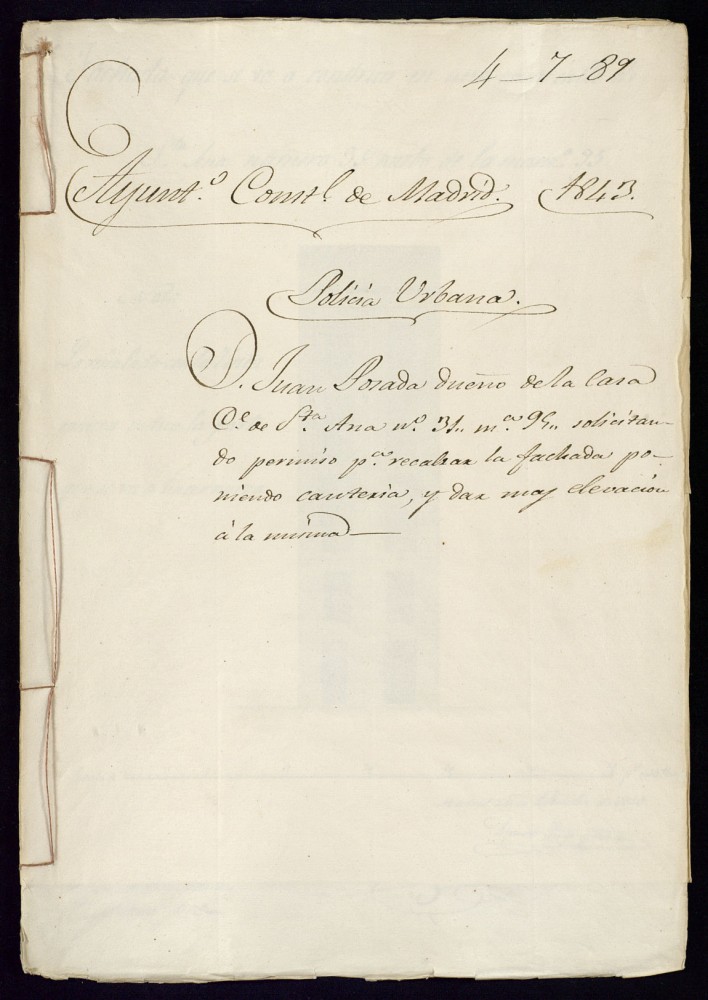 4-7-89
Ayunt.º Const.l de Madrid. 1843.
Policia Urbana.
D. Juan Posada dueño de la Casa
C.e de S.ta Ana n.º 31,, m.a 95,, solicitan-
do permiso p.a recalzar la fachada po-
niendo canteria, y dar mas elevacion
á la misma—